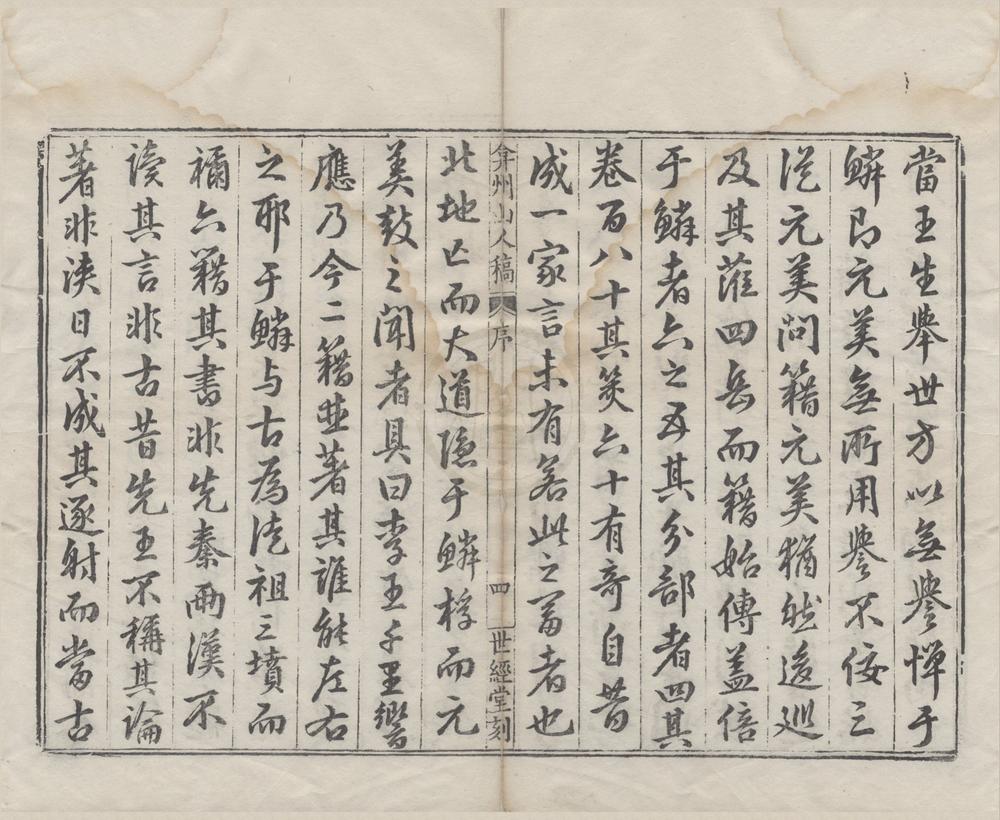 當王生舉世方以無譽憚于
鱗即元美無所用譽不佞三
從元美問籍元美猶然逡巡
及其蓰四岳而籍始傳蓋倍
于鱗者六之五其分部者四其
卷百八十其筴六十有奇自昔
成一家言未有若此之富者也
弇州山人稿 序 四 世經堂刻
北地亡而大道隱于鱗桴而元
美鼓之聞者具曰李王千里響
應乃今二籍並著其誰能左右
之耶于鱗与古為徒祖三墳而
禰六籍其書非先秦兩漢不
讀其言非古昔先王不稱其論
著非浹日不成其逐射而當古